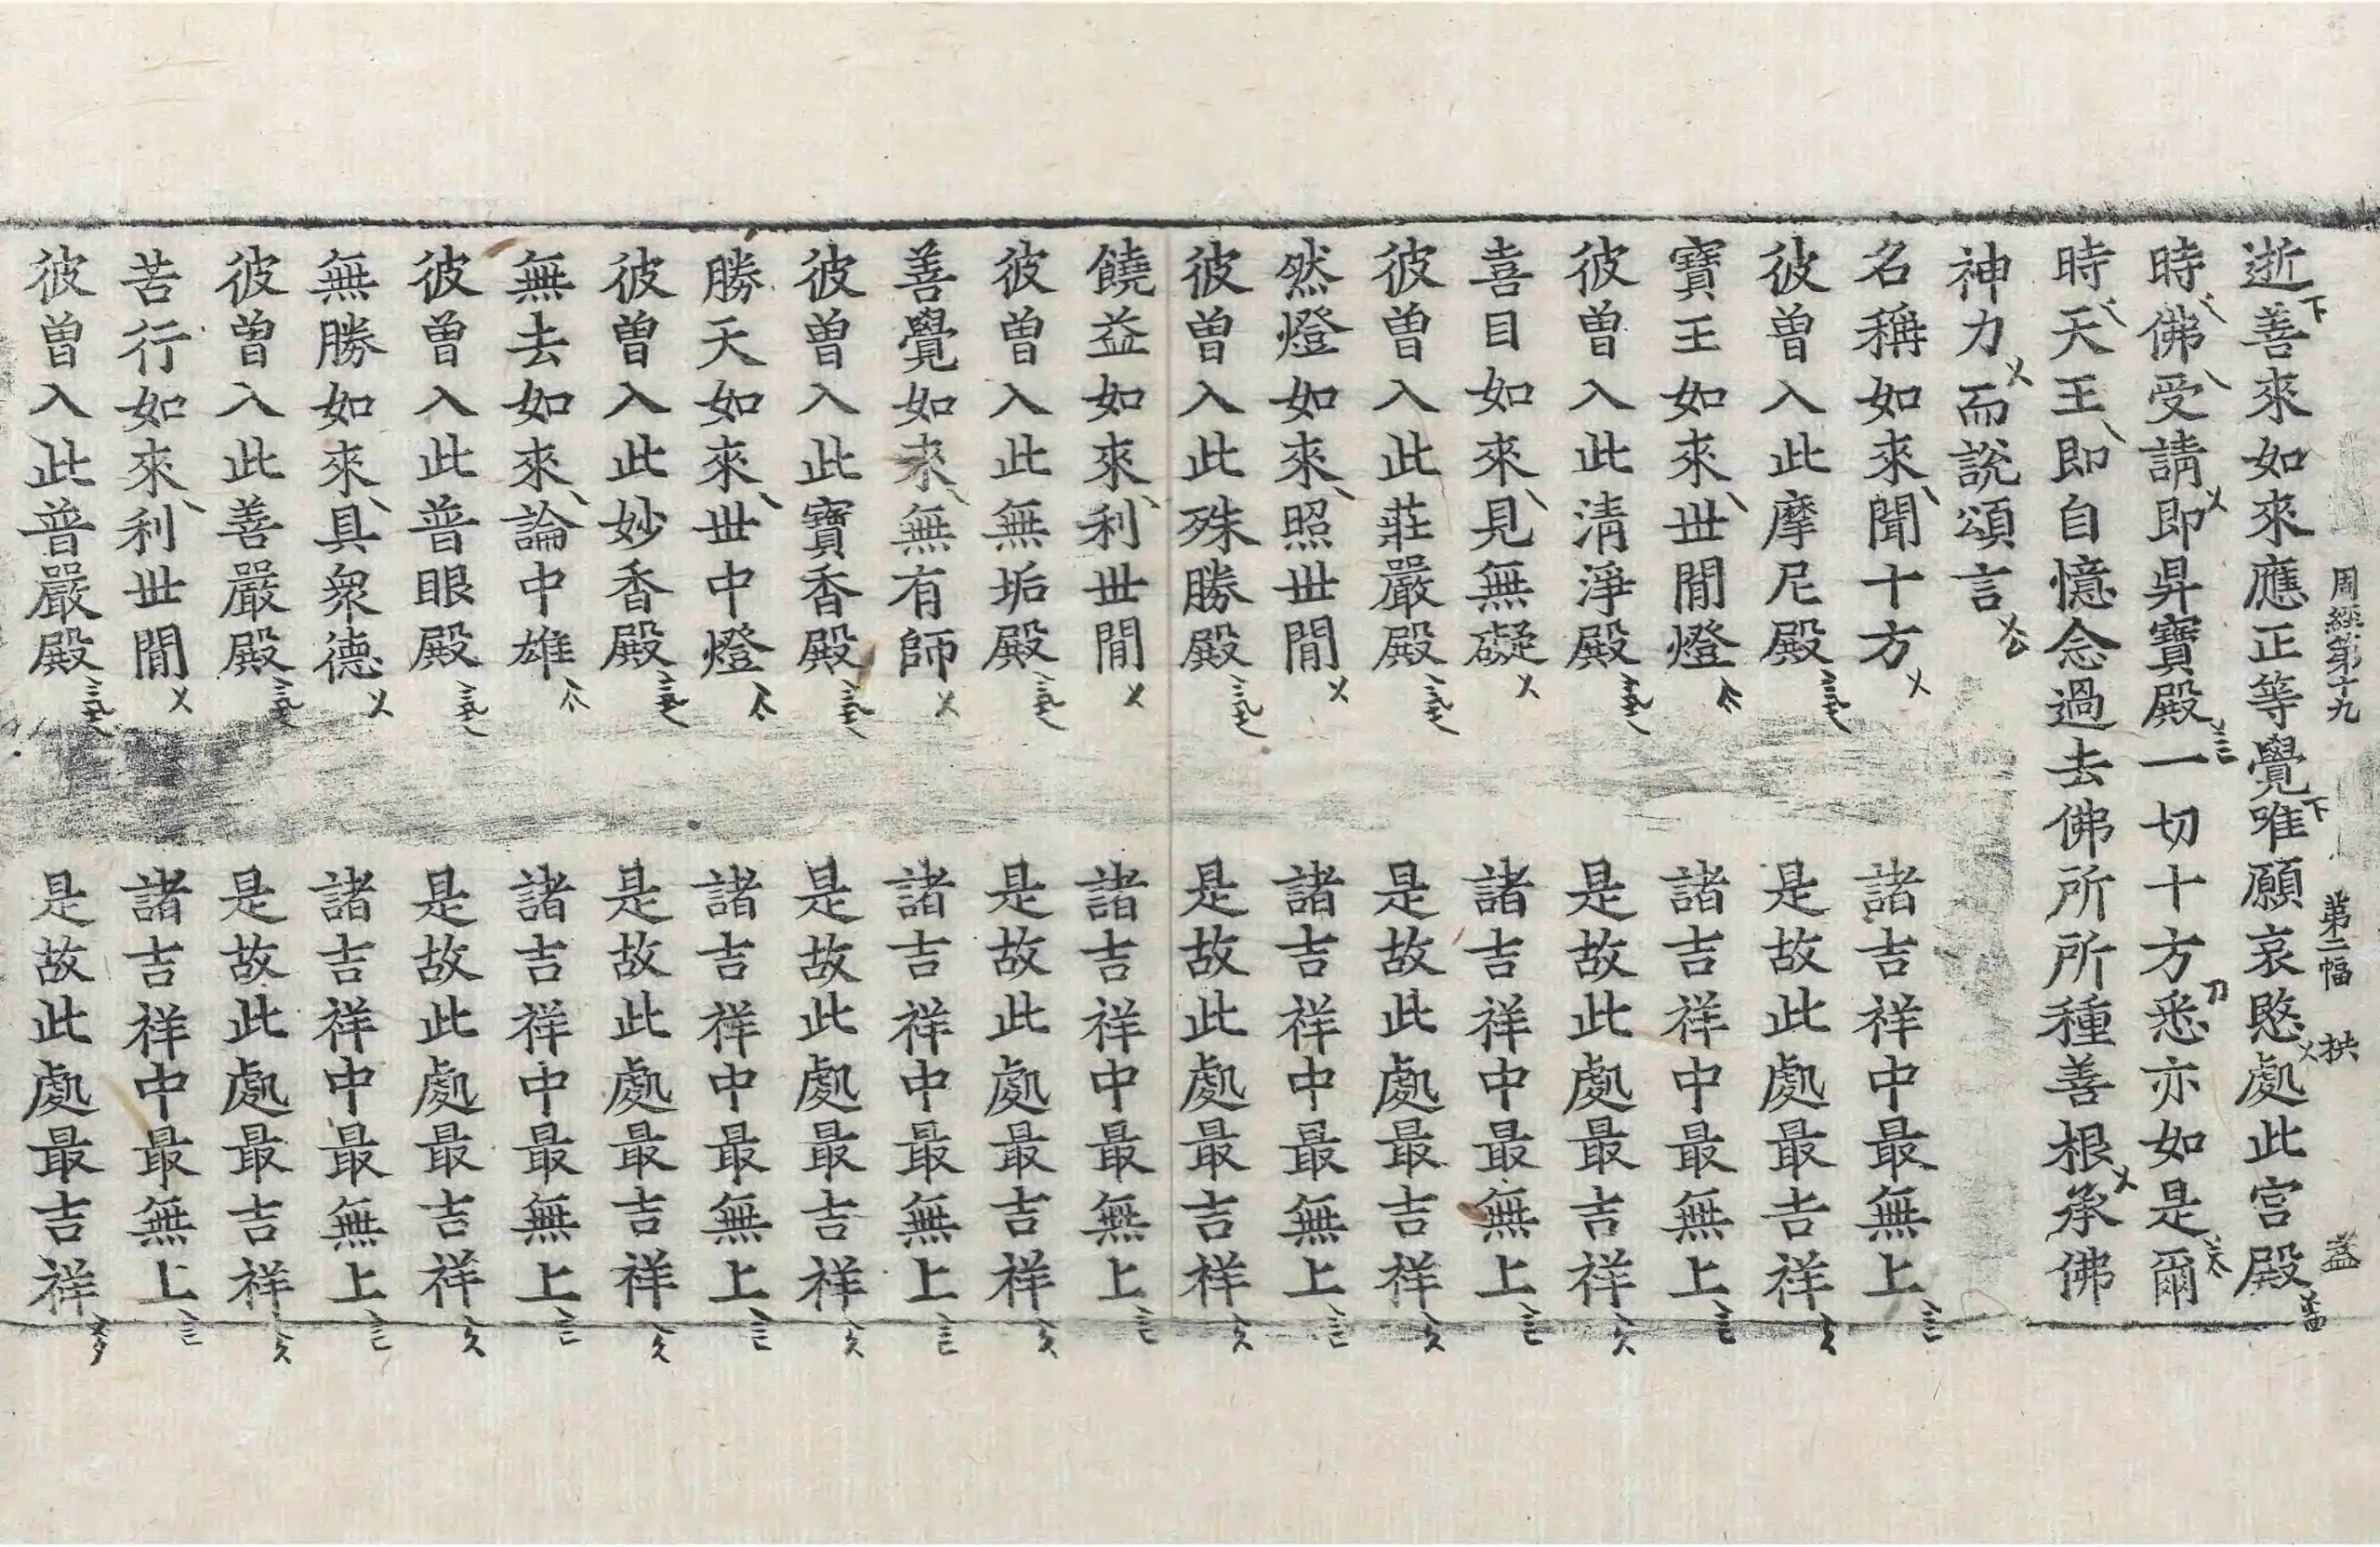 周經第十九 第二幅 拱 益
逝善來如來應正等覺唯願哀愍處此宮殿
時佛受請即昇寶殿一切十方悉亦如是爾
時天王即自憶念過去佛所所種善根承佛
神力而說頌言
名稱如來聞十方 諸吉祥中最無上
彼曾入此摩尼殿 是故此處最吉祥
寶王如來世間燈 諸吉祥中最無上
彼曾入此清淨殿 是故此處最吉祥
喜目如來見無礙 諸吉祥中最無上
彼曾入此莊嚴殿 是故此處最吉祥
然燈如來照世間 諸吉祥中最無上
彼曾入此殊勝殿 是故此處最吉祥
饒益如來利世間 諸吉祥中最無上
彼曾入此無垢殿 是故此處最吉祥
善覺如來無有師 諸吉祥中最無上
彼曾入此寶香殿 是故此處最吉祥
勝天如來世中燈 諸吉祥中最無上
彼曾入此妙香殿 是故此處最吉祥
無去如來論中雄 諸吉祥中最無上
彼曾入此普眼殿 是故此處最吉祥
無勝如來具眾德 諸吉祥中最無上
彼曾入此善嚴殿 是故此處最吉祥
苦行如來利世間 諸吉祥中最無上
彼曾入此普嚴殿 是故此處最吉祥